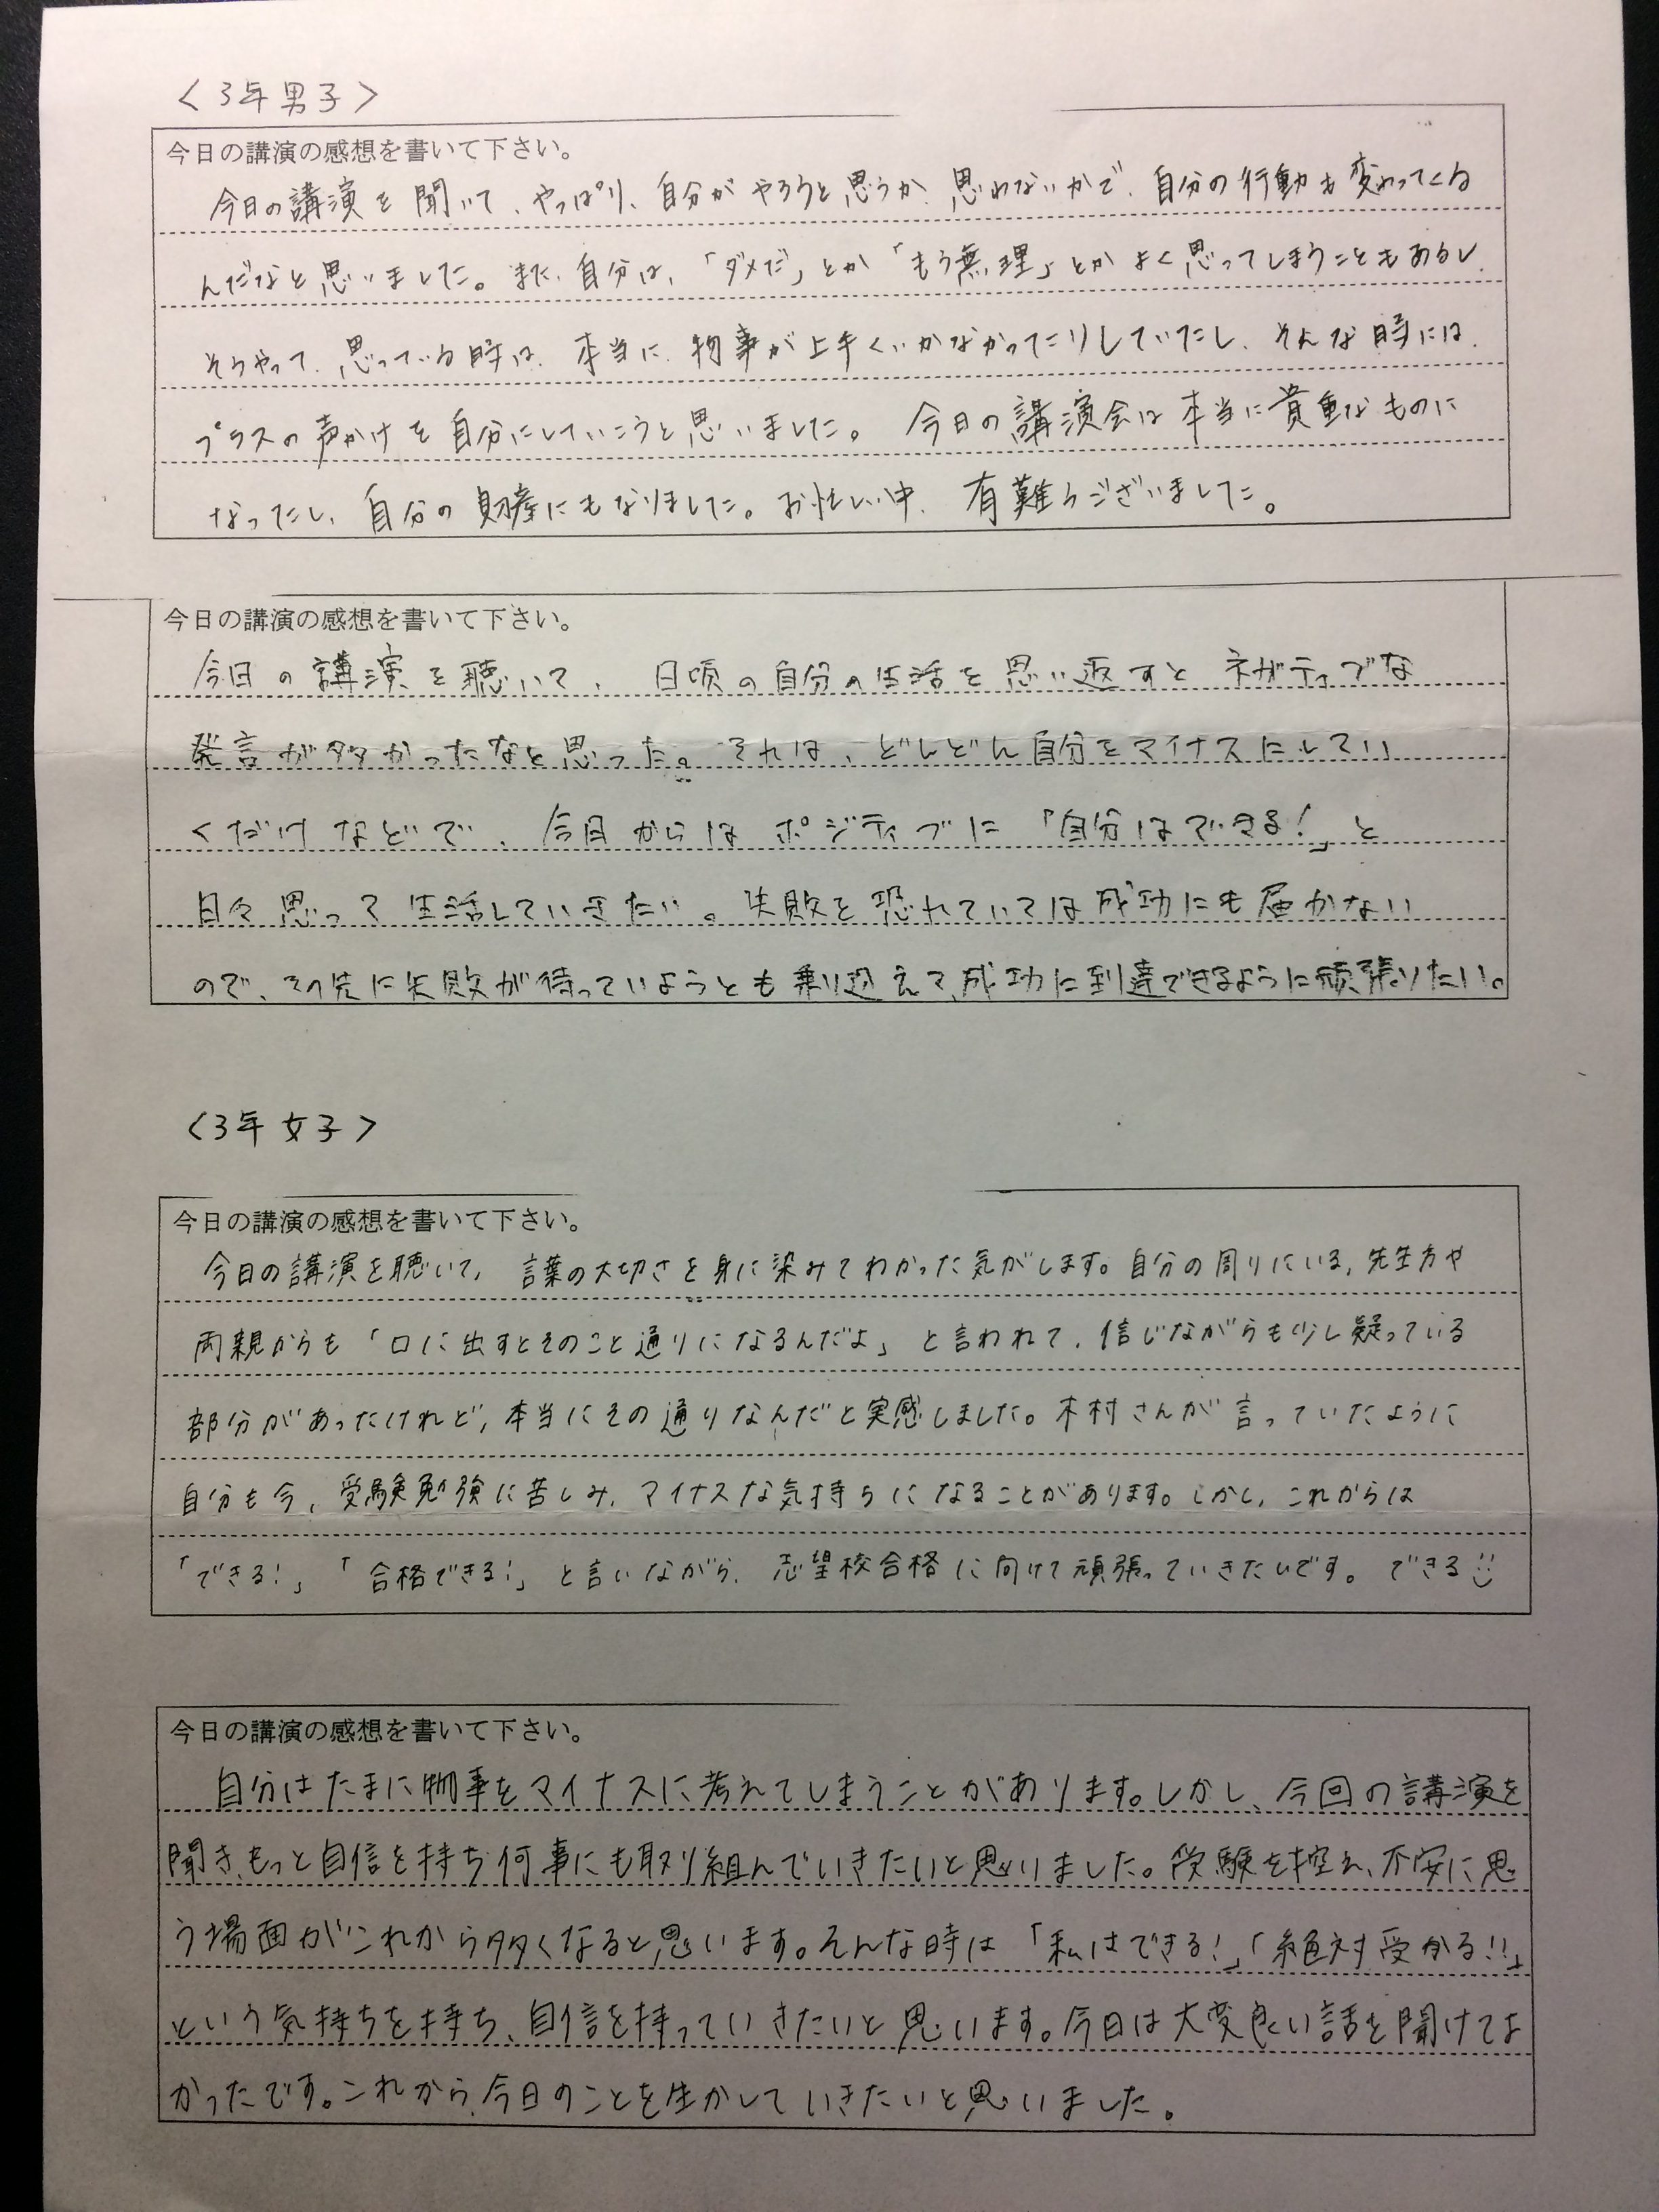 <3年男子>
今日の講演の感想を書いて下さい。
今日の講演を聞いて、やっぱり、自分がやろうと思うか、思わないかで、自分の行動も変わってくる
んだなと思いました。また、自分は、「ダメだ」とか「もう無理」とかよく思ってしまうこともあるし、
そうやって、思っている時は、本当に、物事が上手くいかなかったりしていたし、そんな時には、
プラスの声かけを自分にしていこうと思いました。今日の講演会は本当に貴重なものに
なったし、自分の財産にもなりました。お忙しい中、有難うございました。
今日の講演の感想を書いて下さい。
今日の講演を聴いて、日頃の自分の生活を思い返すとネガティブな
発言が多かったなと思った。それは、どんどん自分をマイナスにしてい
くだけなどで、今日からはポジティブに「自分はできる!」と
日々思って生活していきたい。失敗を恐れていては成功にも届かない
ので、その先に失敗が待っていようとも乗り越えて、成功に到達できるように頑張りたい。
<3年女子>
今日の講演の感想を書いて下さい。
今日の講演を聴いて、言葉の大切さを身に染みてわかった気がします。自分の周りにいる、先生方や
両親からも「口に出すとそのこと通りになるんだよ」と言われて、信じながらも少し疑っている
部分があったけれど、本当にその通りなんだと実感しました。木村さんが言っていたように
自分も今、受験勉強に苦しみ、マイナスな気持ちになることがあります。しかし、これからは
「できる!」「合格できる!」と言いながら、志望校合格に向けて頑張っていきたいです。できる!!
今日の講演の感想を書いて下さい。
自分はたまに物事をマイナスに考えてしまうことがあります。しかし、今回の講演を
聞き、もっと自信を持ち何事にも取り組んでいきたいと思いました。受験を控え、不安に思
う場面がこれから多くなると思います。そんな時は「私はできる!」「絶対受かる!!」
という気持ちを持ち、自信を持っていきたいと思います。今日は大変良い話を聞けてよ
かったです。これから、今日のことを生かしていきたいと思いました。